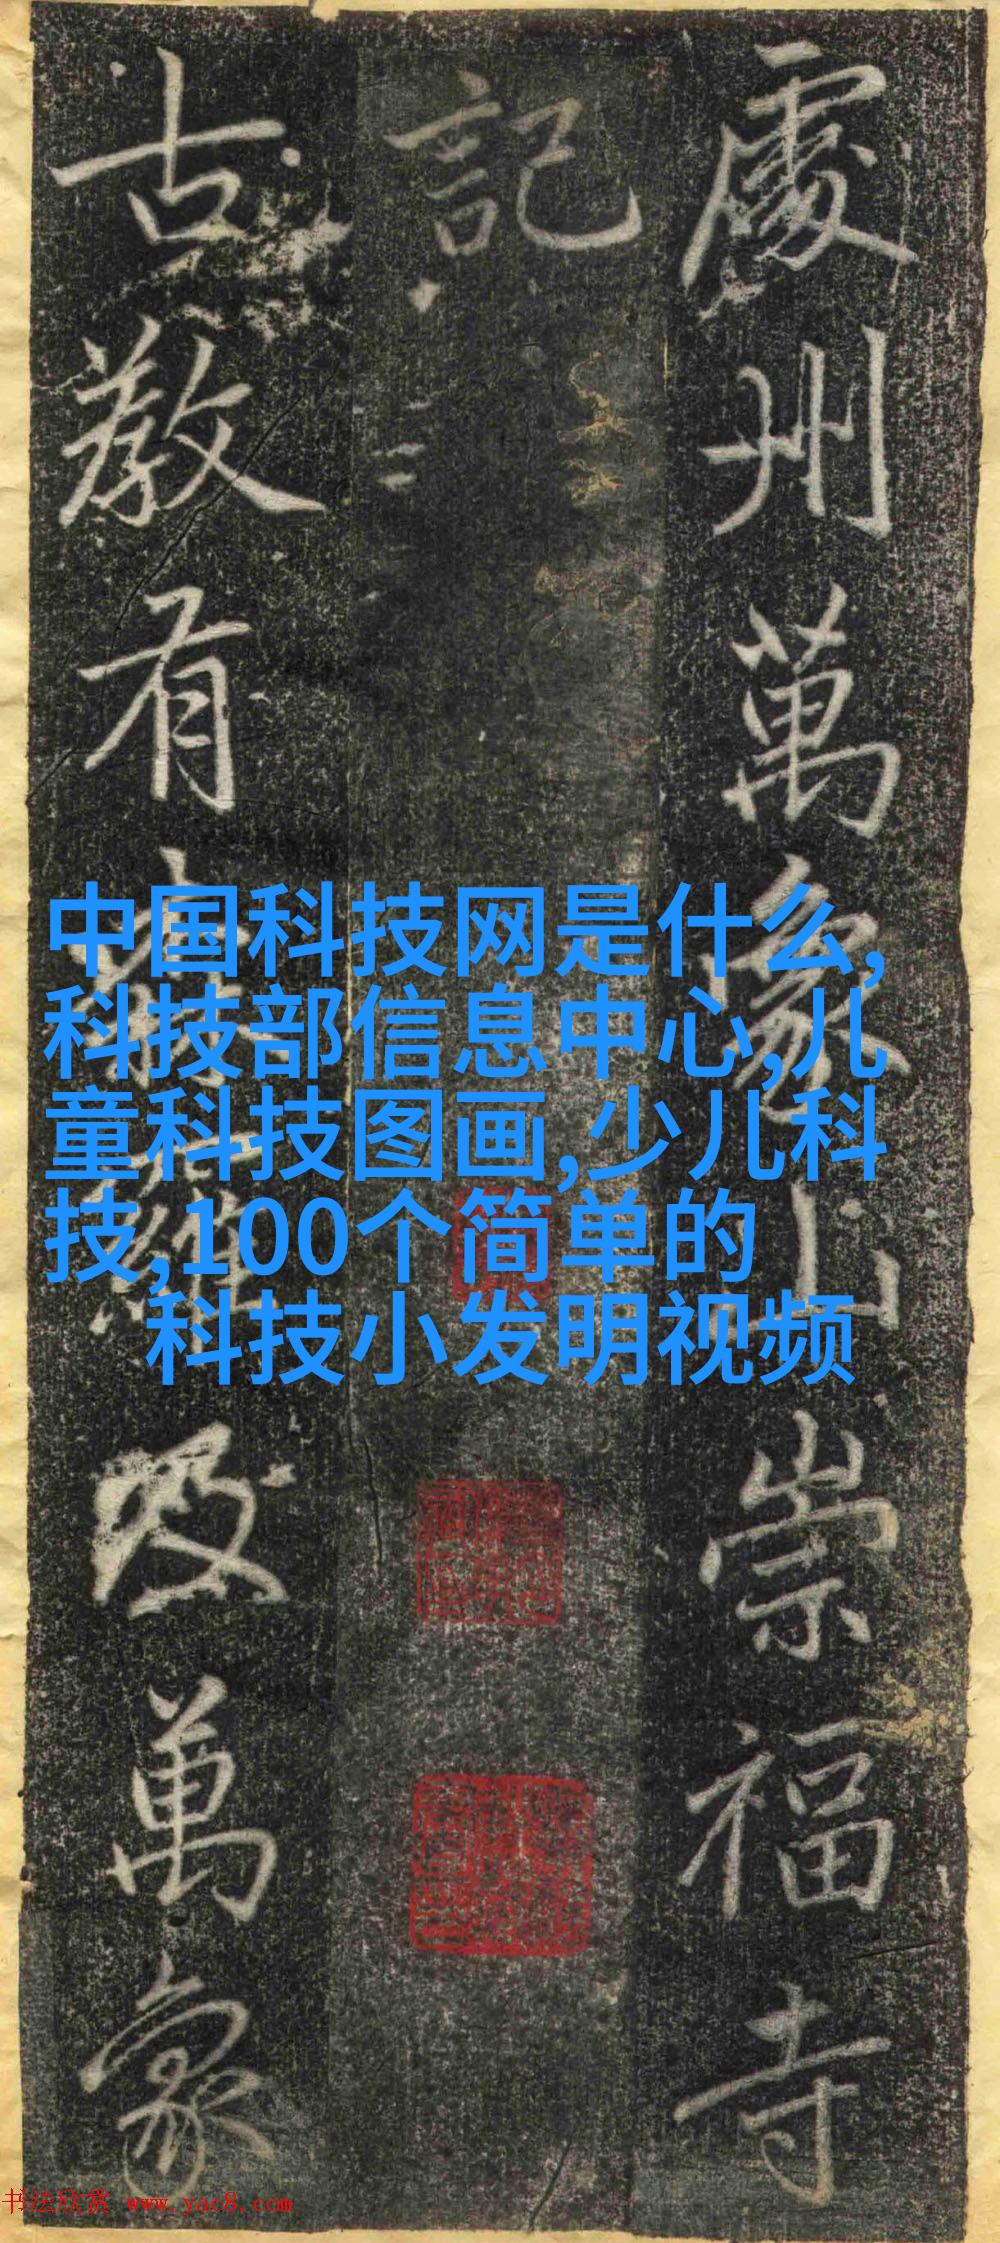 處州萬象山崇福寺
記
古敎有
及萬象
中国科技网是什么,
科技部信息中心,儿
童科技图画,少儿科
技,100个简单的
科技小发明视频
书法欣赏 www.yac8.com